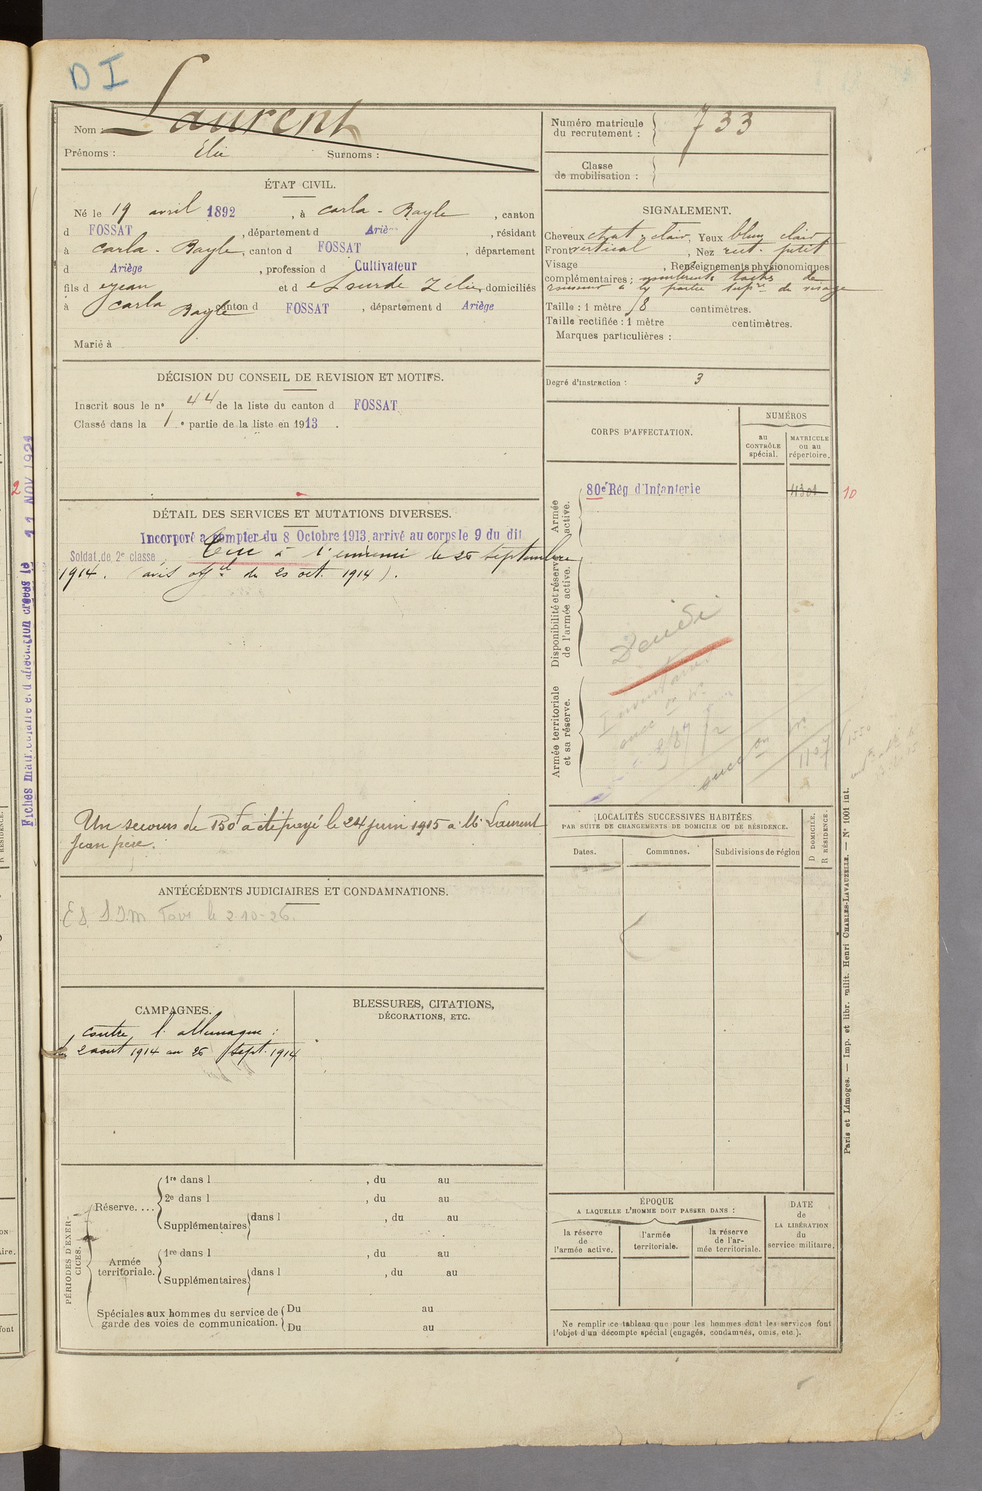 D I
Nom : Laurent
Prénoms : Elie Surnoms :
Numéro matricule du recrutement : 733
Classe de mobilisation :
ÉTAT CIVIL.
Né le 19 avril 1892, à Carla-Bayle, canton
d FOSSAT, département d Ariè, résidant
à Carla-Bayle, canton d FOSSAT, département
d Ariège, profession d Cultivateur
fils d e Jean et d e Lourde Zélie, domiciliés
à Carla Bayle canton d FOSSAT, département d Ariège
Marié à
SIGNALEMENT.
Cheveux chat. clair, Yeux bleu clair
Front vertical, Nez rect. petit
Visage , Renseignements physionomiques
complémentaires : nombreuses taches de
rousseur à la partie supre du visage
Taille : 1 mètre 58 centimètres.
Taille rectifiée : 1 mètre centimètres.
Marques particulières :
Degré d'instruction : 3
DÉCISION DU CONSEIL DE REVISION ET MOTIFS.
Inscrit sous le n° 44 de la liste du canton d FOSSAT
Classé dans la 1e partie de la liste en 1913.
CORPS D'AFFECTATION.
NUMÉROS
au CONTRÔLE spécial.
MATRICULE ou au répertoire.
Armée active.
80e Rég d'Infanterie
11301
10
2
Disponibilité et réserve de l'armée active.
Armée territoriale et sa réserve.
DÉTAIL DES SERVICES ET MUTATIONS DIVERSES.
Incorporé à compter du 8 Octobre 1913, arrivé au corps le 9 du dit
Soldat de 2e classe Tué à l'ennemi le 26 septembre
1914. (avis offel du 20 oct. 1914).
Fiches matriculaire et d'affectation créées le 11 NOV 1921
Un secours de 150f a été payé le 24 juin 1915 à Mr Laurent
Jean père.
ANTÉCÉDENTS JUDICIAIRES ET CONDAMNATIONS.
le 2-10-26.
CAMPAGNES.
Contre l'Allemagne :
2 août 1914 au 26 sept. 1914
BLESSURES, CITATIONS,
DÉCORATIONS, ETC.
LOCALITÉS SUCCESSIVES HABITÉES
PAR SUITE DE CHANGEMENTS DE DOMICILE OU DE RÉSIDENCE.
Dates. Communes. Subdivisions de région
D DOMICILE.
R RÉSIDENCE.
PÉRIODES D'EXERCICES.
Réserve....
1re dans l , du au
2e dans l , du au
Supplémentaires dans l , du au
Armée territoriale.
1re dans l , du au
Supplémentaires dans l , du au
Spéciales aux hommes du service de garde des voies de communication.
Du au
Du au
ÉPOQUE
A LAQUELLE L'HOMME DOIT PASSER DANS :
la réserve de l'armée active.
l'armée territoriale.
la réserve de l'armée territoriale.
DATE de LA LIBÉRATION du service militaire.
Ne remplir ce tableau que pour les hommes dont les services font
l'objet d'un décompte spécial (engagés, condamnés, omis, etc.).
Paris et Limoges. — Imp. et libr. milit. Henri CHARLES-LAVAUZELLE. — N° 1001 int.